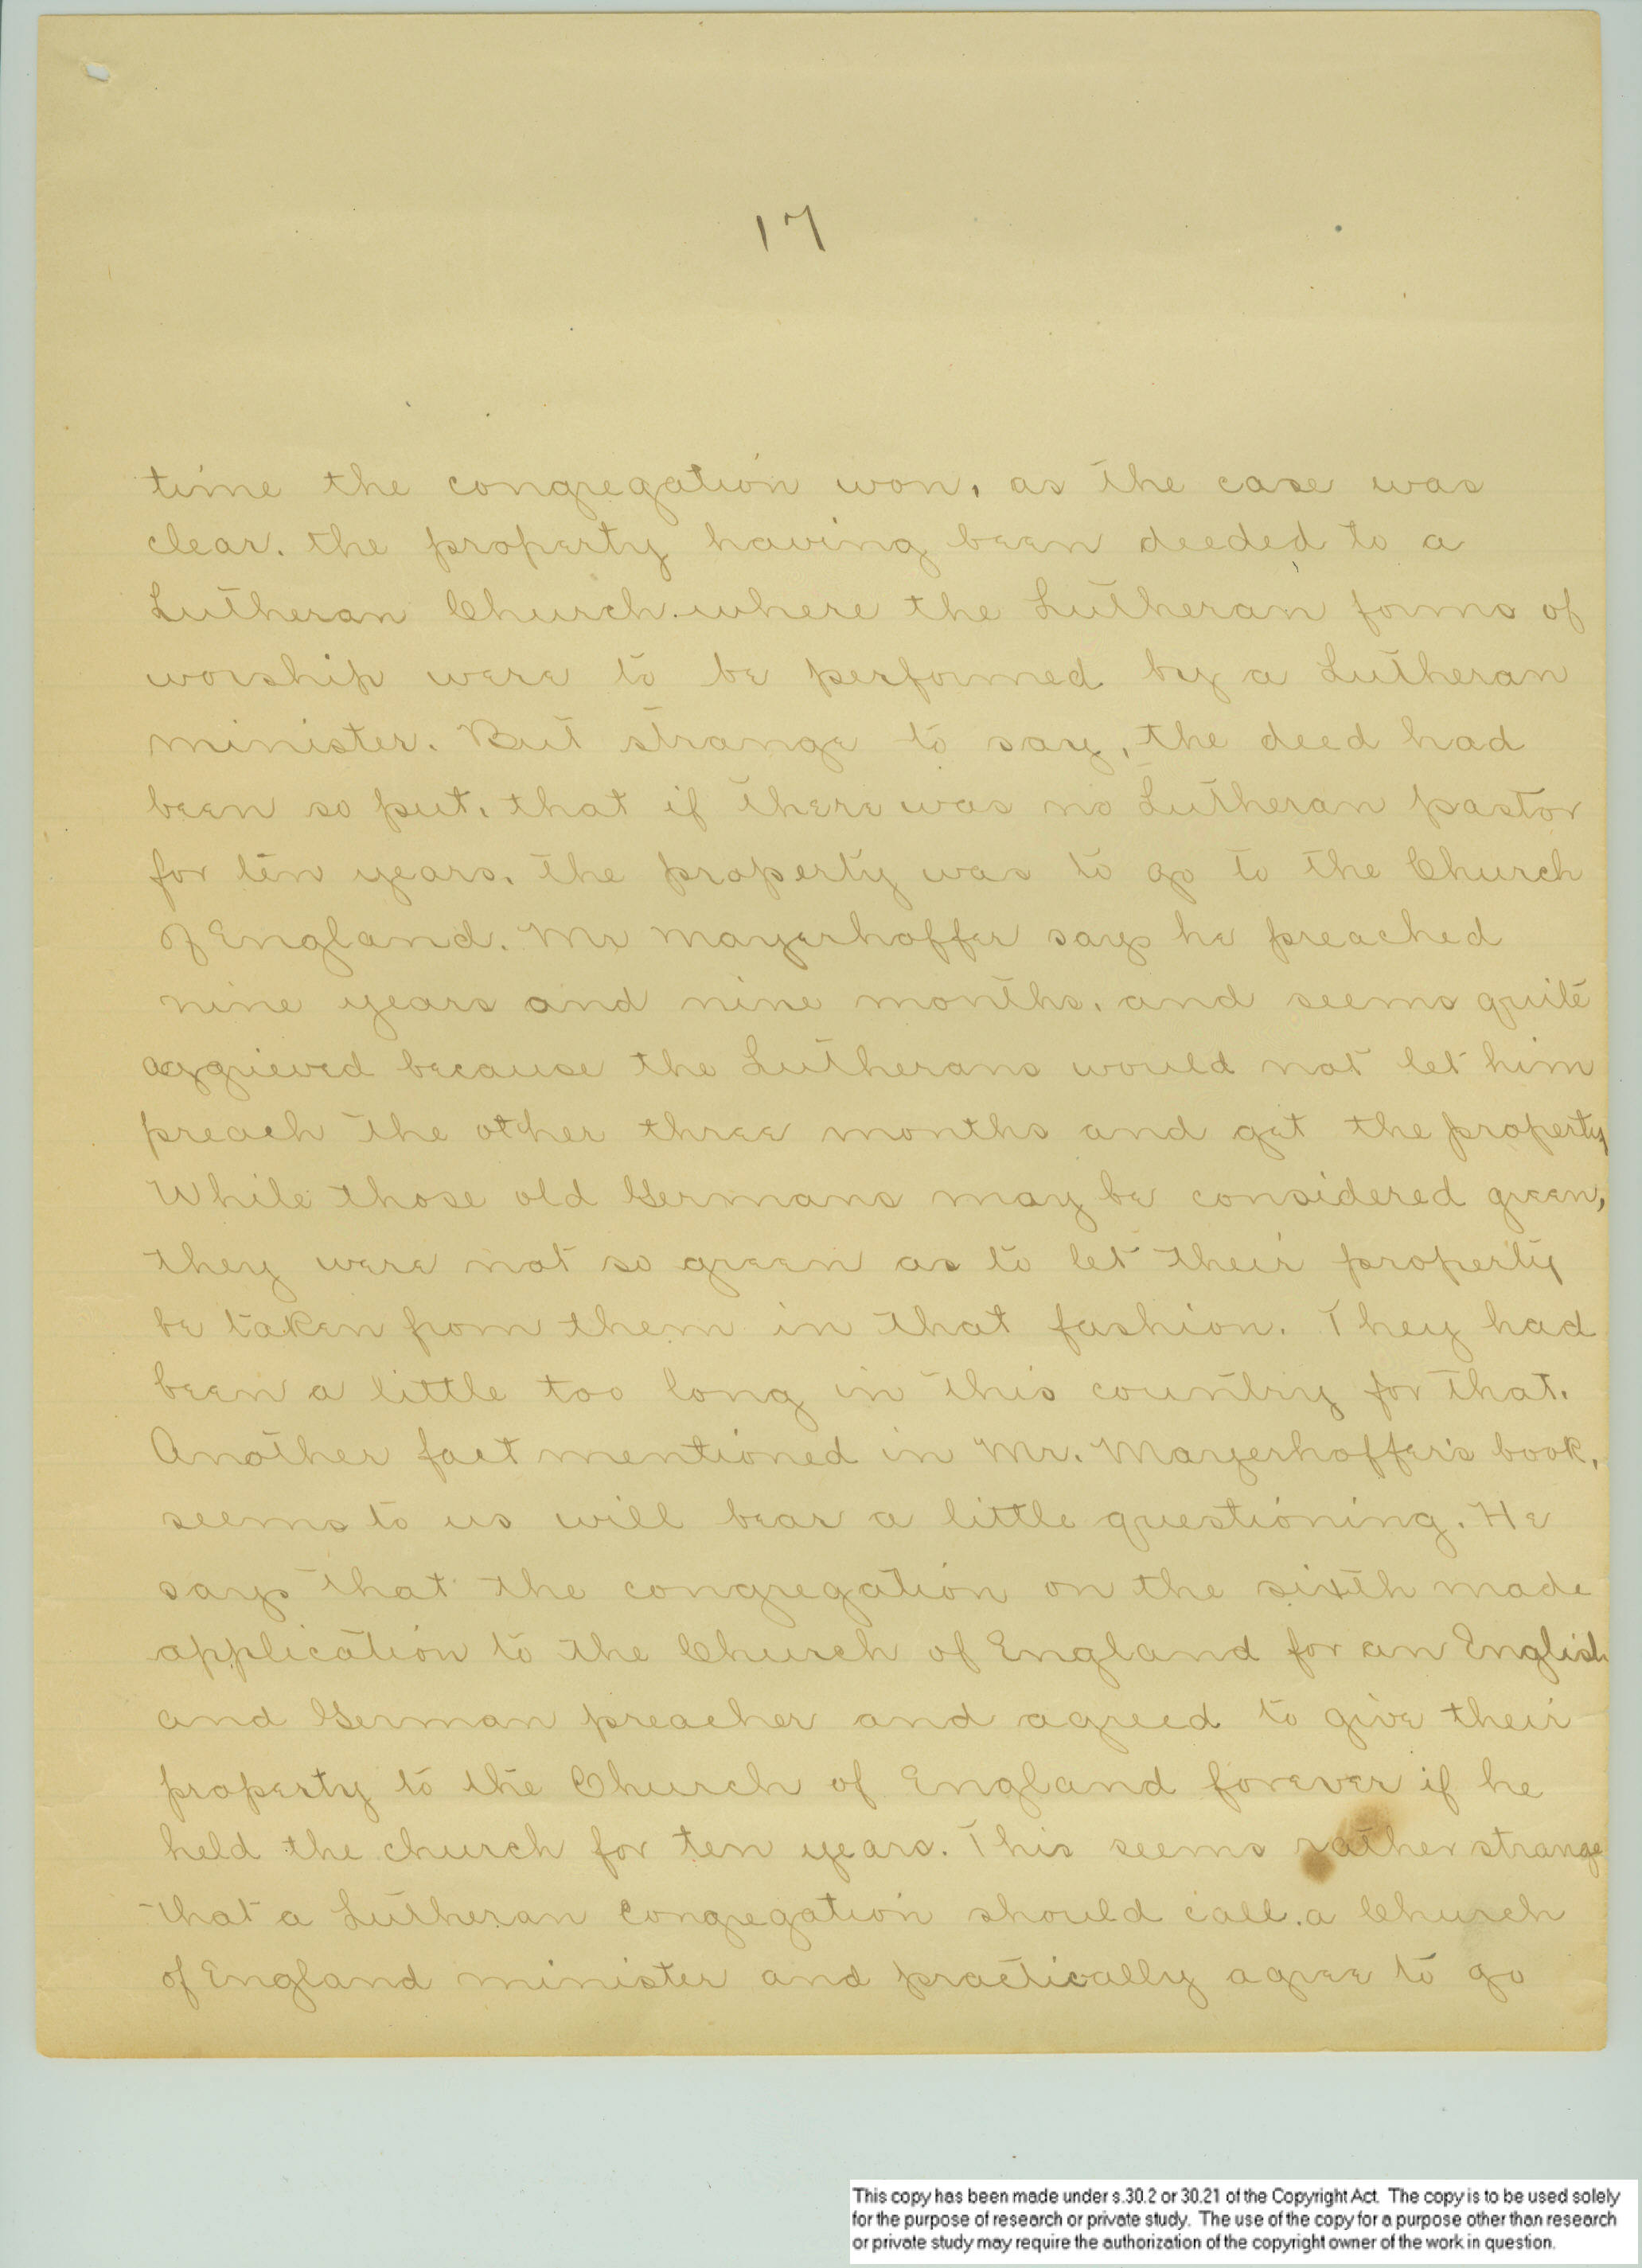 17
time the congregation won, as the case was
clear. the property having been deeded to a
Lutheran Church. where the Lutheran forms of
worship were to be performed by a Lutheran
minister. But strange to say, the deed had
been so put, that if there was no Lutheran pastor
for ten years, the property was to go to the Church
of England. Mr Mayerhoffer says he preached
nine years and nine months, and seems quite
aggrieved because the Lutherans would not let him
preach the other three months and get the property
While those old Germans may be considered green,
they were not so green as to let their property
be taken from them in that fashion. They had
been a little too long in this country for that.
Another fact mentioned in Mr. Mayerhoffer's book,
seems to us will bear a little questioning. He
says that the congregation on the sixth made
application to the Church of England for an English
and German preacher and agreed to give their
property to the Church of England forever if he
held the church for ten years. This seems rather strange
that a Lutheran congregation should call a Church
of England minister and practically agree to go
This copy has been made under s.30.2 or 30.21 of the Copyright Act. The copy is to be used solely
for the purpose of research or private study. The use of the copy for a purpose other than research
or private study may require the authorization of the copyright owner of the work in question.